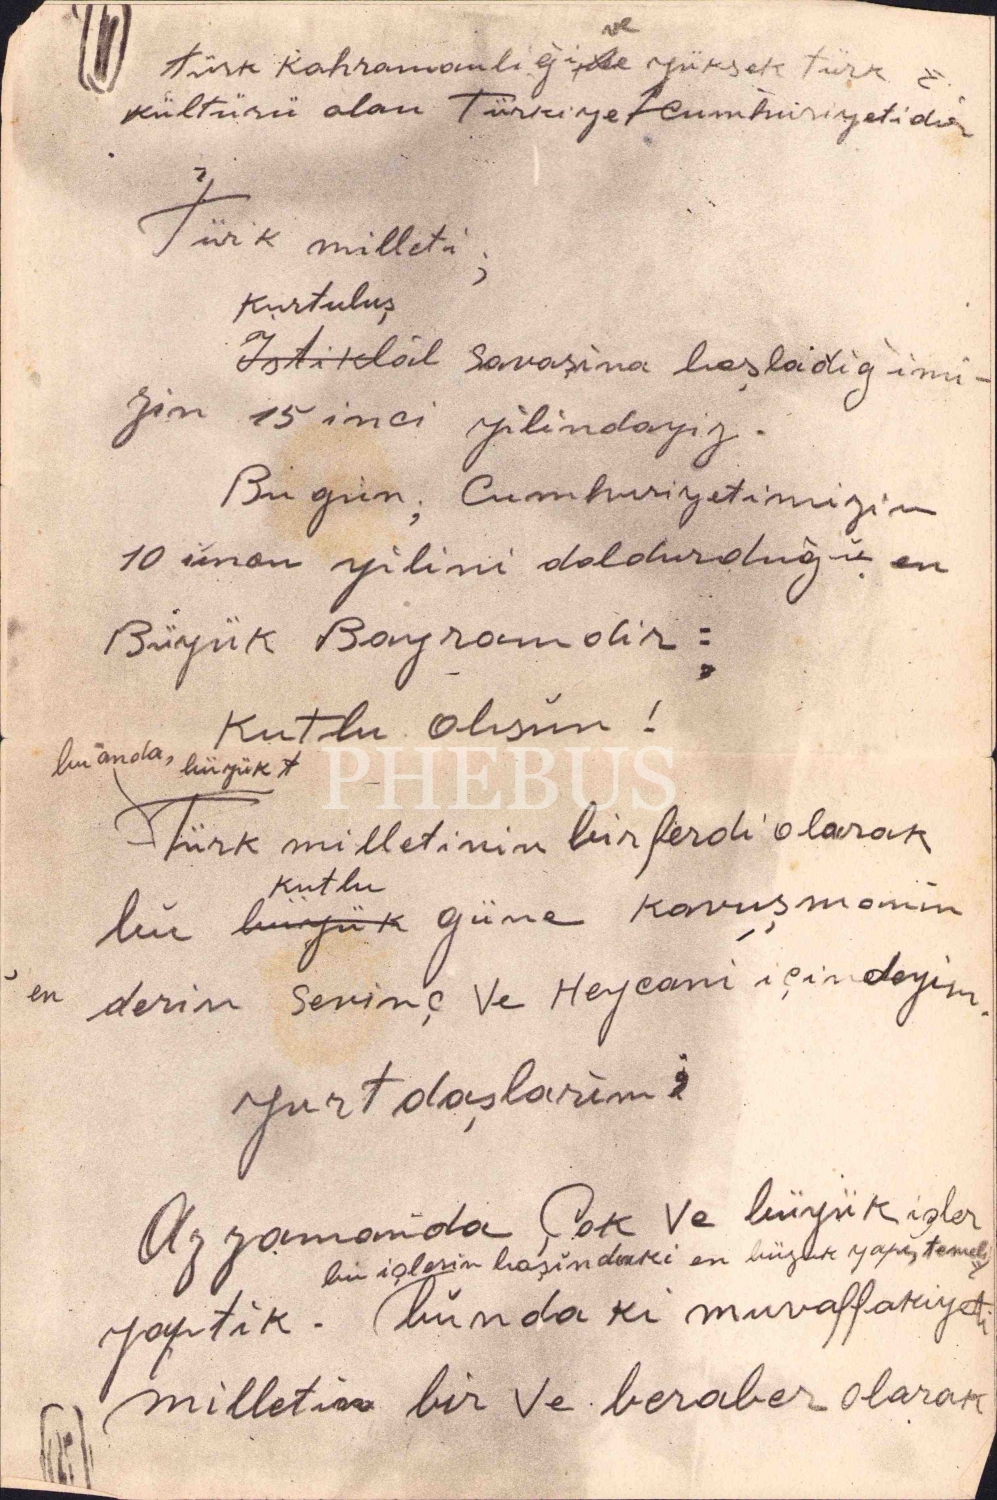 ve
Türk Kahramanliği, ve yüksek Türk
kültürü olan Türkiye Cumhuriyetidir
Türk milleti;
Kurtuluş
Istiklâl Savaşina başladiğimi-
zin 15 inci yilindayiz.
Bu gün, Cumhuriyetimizin
10 uncu yilini doldurduğu en
Büyük Bayramdir;
Kutlu olsun!
bu anda, büyük t
PHEBUS
Türk milletinin bir ferdi olarak
kutlu
bu büyük güne kavuşmanin
en derin sevinç ve Heycani içindeyim.
Yurtdaşlarim!
Az zamanda Çok ve büyük işler
bu işlerin başindaki en büyük yapi, temeli
yaptik. bundaki muvaffakiyeti
milletin bir ve beraber olarak